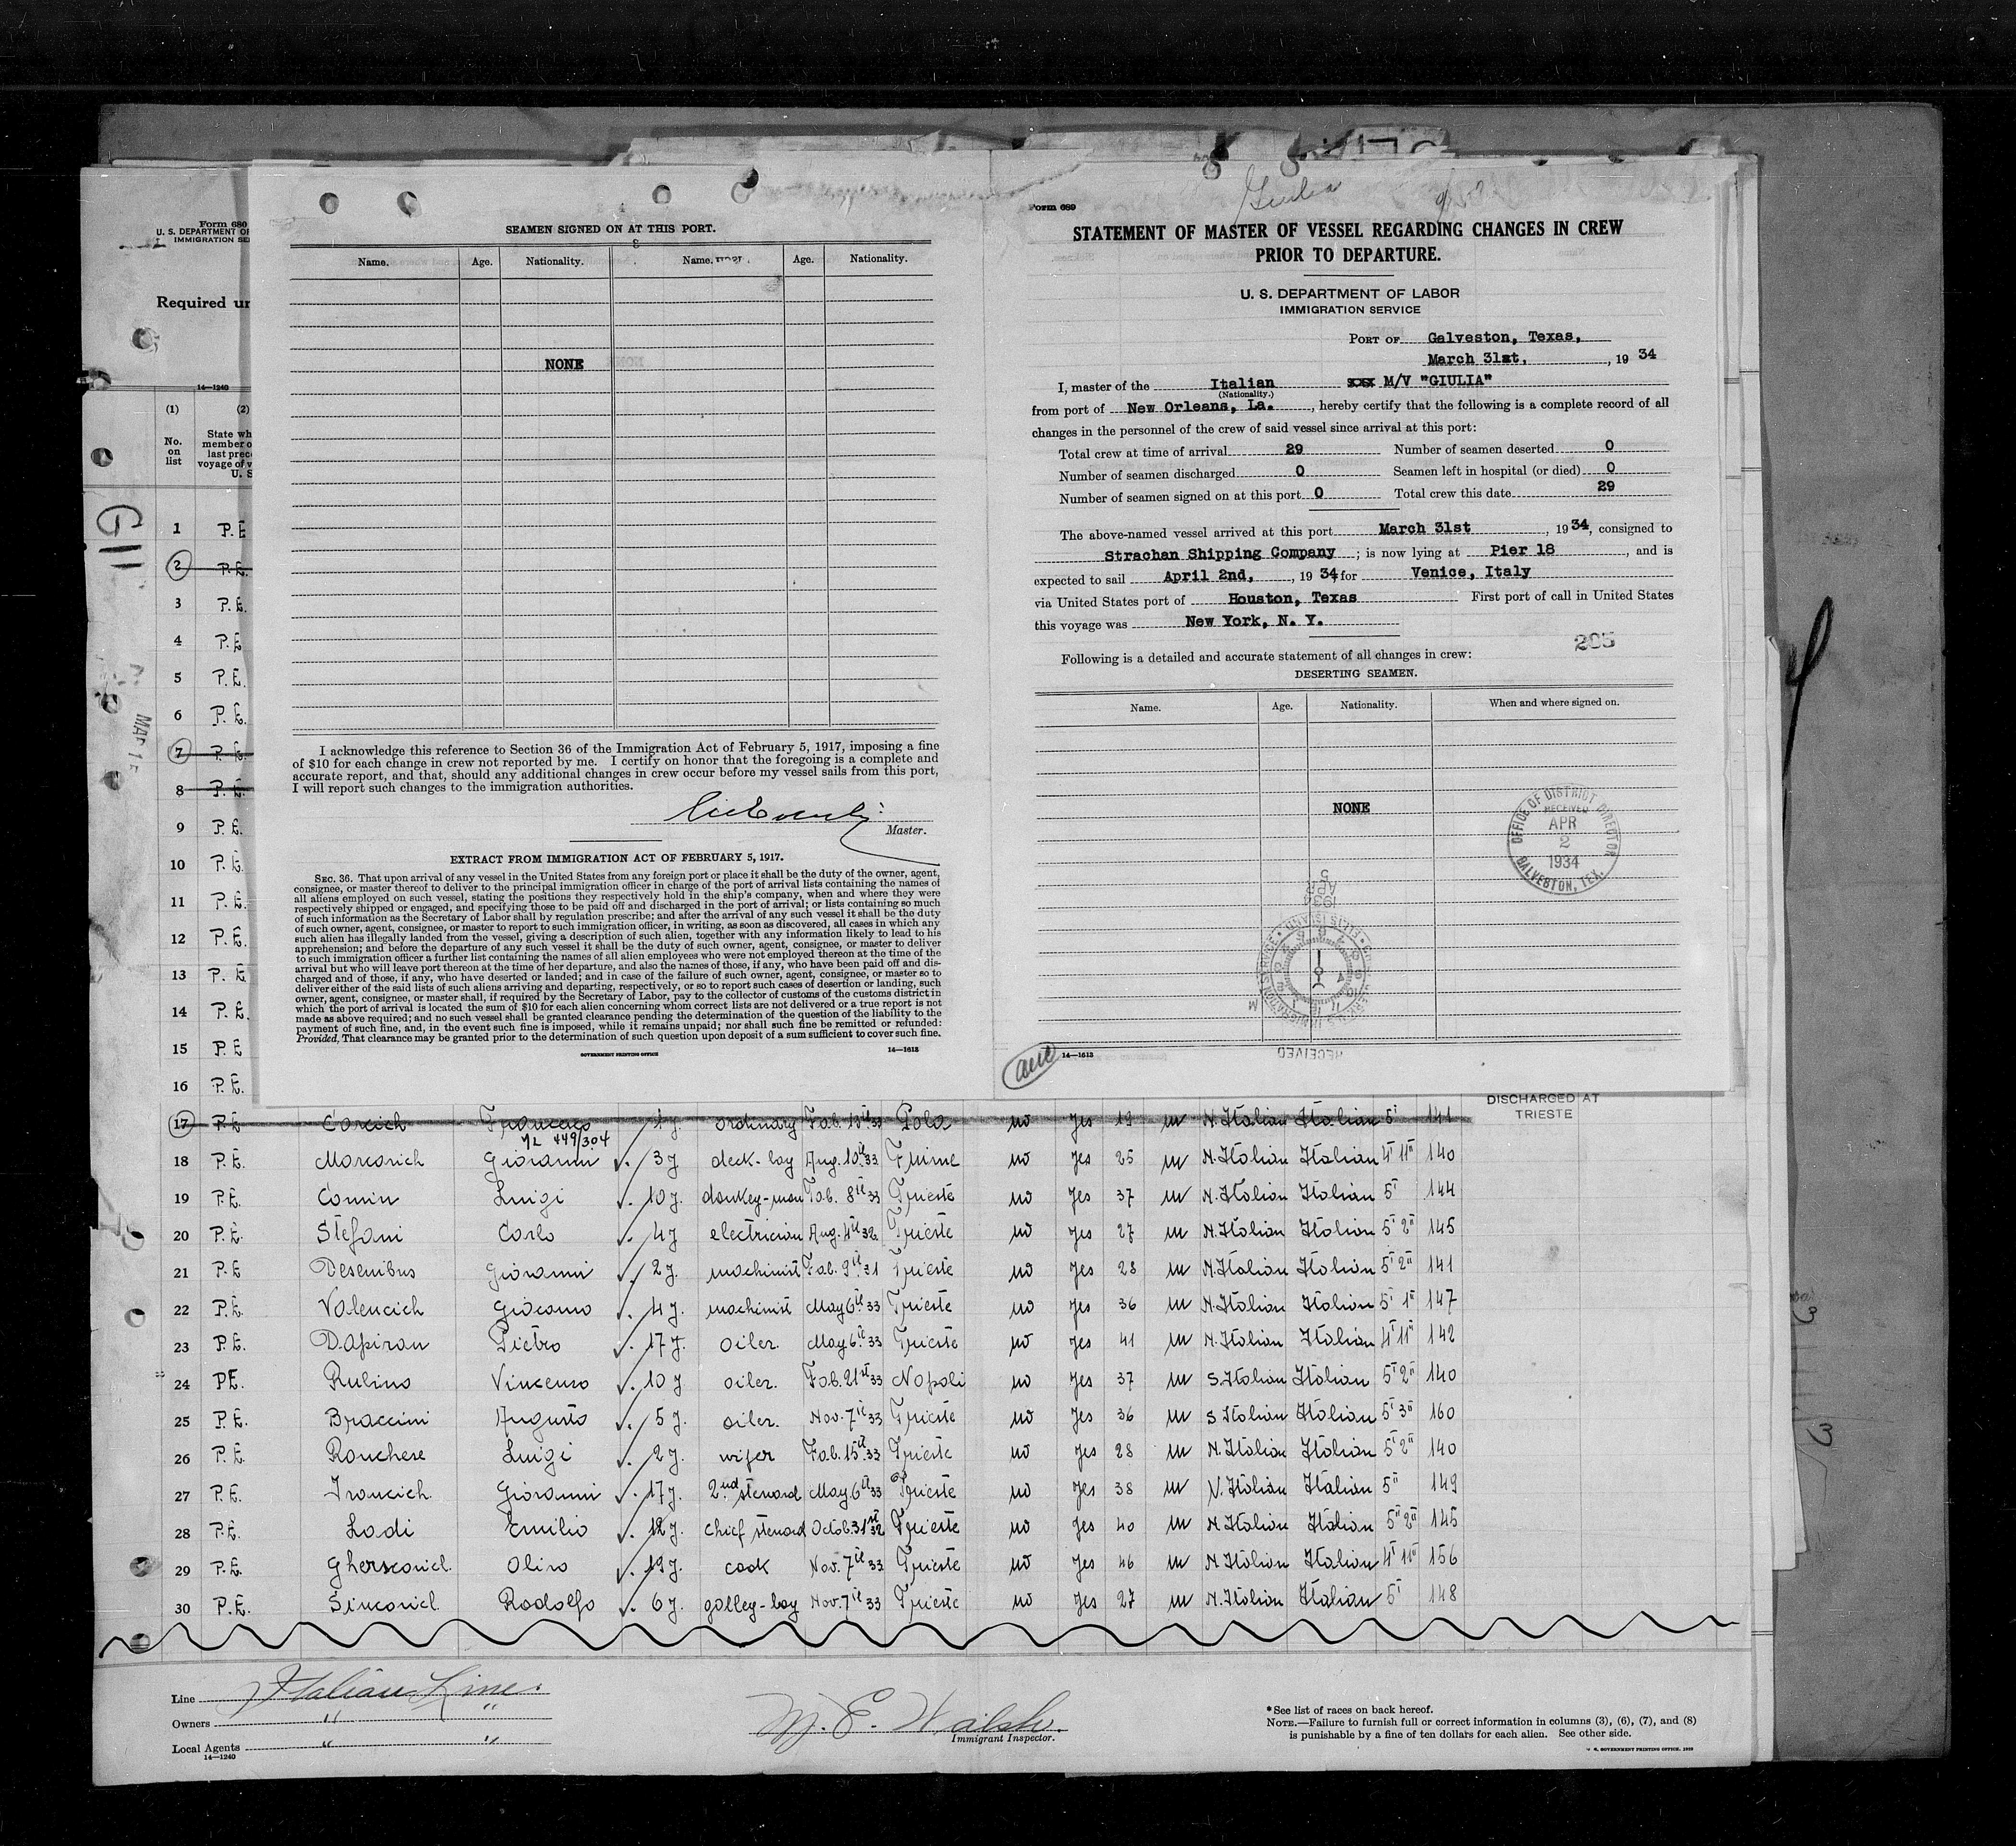 Form 680
U. S. DEPARTMENT OF
IMMIGRATION SE
Required un
14—1240
(1)
(2)
No.
on
list
State wh
member o
last prec
voyage of v
U. S
GII
1 P. E
2 P. E.
3 P. E.
4 P. E
5 P. E.
6 P. E.
7 P. E.
8 P. E.
9 P. E.
10 P. E.
11 P. E.
12 P. E.
13 P. E
14 P. E.
15 P. E
16 P. E.
SEAMEN SIGNED ON AT THIS PORT.
Name. Age. Nationality. Name. Age. Nationality.
NONE
I acknowledge this reference to Section 36 of the Immigration Act of February 5, 1917, imposing a fine
of $10 for each change in crew not reported by me. I certify on honor that the foregoing is a complete and
accurate report, and that, should any additional changes in crew occur before my vessel sails from this port,
I will report such changes to the immigration authorities.
Master.
EXTRACT FROM IMMIGRATION ACT OF FEBRUARY 5, 1917.
SEC. 36. That upon arrival of any vessel in the United States from any foreign port or place it shall be the duty of the owner, agent,
consignee, or master thereof to deliver to the principal immigration officer in charge of the port of arrival lists containing the names of
all aliens employed on such vessel, stating the positions they respectively hold in the ship's company, when and where they were
respectively shipped or engaged, and specifying those to be paid off and discharged in the port of arrival; or lists containing so much
of such information as the Secretary of Labor shall by regulation prescribe; and after the arrival of any such vessel it shall be the duty
of such owner, agent, consignee, or master to report to such immigration officer, in writing, as soon as discovered, all cases in which any
such alien has illegally landed from the vessel, giving a description of such alien, together with any information likely to lead to his
apprehension; and before the departure of any such vessel it shall be the duty of such owner, agent, consignee, or master to deliver
to such immigration officer a further list containing the names of all alien employees who were not employed thereon at the time of the
arrival but who will leave port thereon at the time of her departure, and also the names of those, if any, who have been paid off and dis-
charged and of those, if any, who have deserted or landed; and in case of the failure of such owner, agent, consignee, or master so to
deliver either of the said lists of such aliens arriving and departing, respectively, or so to report such cases of desertion or landing, such
owner, agent, consignee, or master shall, if required by the Secretary of Labor, pay to the collector of customs of the customs district in
which the port of arrival is located the sum of $10 for each alien concerning whom correct lists are not delivered or a true report is not
made as above required; and no such vessel shall be granted clearance pending the determination of the question of the liability to the
payment of such fine, and, in the event such fine is imposed, while it remains unpaid; nor shall such fine be remitted or refunded:
Provided, That clearance may be granted prior to the determination of such question upon deposit of a sum sufficient to cover such fine.
GOVERNMENT PRINTING OFFICE
14—1613
Giulia
Form 689
STATEMENT OF MASTER OF VESSEL REGARDING CHANGES IN CREW
PRIOR TO DEPARTURE.
U. S. DEPARTMENT OF LABOR
IMMIGRATION SERVICE
PORT OF Galveston, Texas,
March 31st, , 19 34
I, master of the Italian xxx M/V "GIULIA"
(Nationality.)
from port of New Orleans, La. , hereby certify that the following is a complete record of all
changes in the personnel of the crew of said vessel since arrival at this port:
Total crew at time of arrival 29 Number of seamen deserted 0
Number of seamen discharged 0 Seamen left in hospital (or died) 0
Number of seamen signed on at this port 0 Total crew this date 29
The above-named vessel arrived at this port March 31st , 1934, consigned to
Strachan Shipping Company ; is now lying at Pier 18 , and is
expected to sail April 2nd, , 19 34, for Venice, Italy
via United States port of Houston, Texas First port of call in United States
this voyage was New York, N. Y.
205
Following is a detailed and accurate statement of all changes in crew:
DESERTING SEAMEN.
Name. Age. Nationality. When and where signed on.
NONE
OFFICE OF DISTRICT DIRECTOR
RECEIVED
APR
2
1934
GALVESTON, TEX.
5
APR
1934
RECEIVED
14—1613
DISCHARGED AT
TRIESTE
17 P. E Carcich Francesco 1 y ordinary Feb. 13th 33 Pola no yes 19 m N. Italian Italian 5' 141
YL 449/304
18 P. E. Marcovich Giovanni 3 y deck-boy Aug. 10th 33 Fiume no yes 25 m N. Italian Italian 4' 11" 140
19 P. E. Comin Luigi 10 y. donkey-man Feb. 8th 33 Trieste no yes 37 m N. Italian Italian 5' 144
20 P. E. Stefani Carlo 4 y electrician Aug. 4th 32 Trieste no yes 27 m N. Italian Italian 5' 2" 145
21 P. E Desenibus Giovanni 2 y. machinist Feb. 9th 31 Trieste no yes 28 m N. Italian Italian 5' 2" 141
22 P. E. Valencich Giacomo 4 y. machinist May 6th 33 Trieste no yes 36 m N. Italian Italian 5' 1" 147
23 P. E. Dapiran Pietro 17 y. oiler. May 6th 33 Trieste no yes 41 m N. Italian Italian 4' 11" 142
24 P.E. Rubino Vincenzo 10 y oiler. Feb. 21st 33 Napoli no yes 37 m S. Italian Italian 5' 2" 140
25 P. E. Braccini Augusto 5 y. oiler. Nov. 7th 33 Trieste no yes 36 m S Italian Italian 5' 3" 160
26 P. E. Ronchese Luigi 2 y. wiper Feb. 15th 33 Trieste no yes 28 m N. Italian Italian 5' 2" 140
27 P. E. Francich Giovanni 17 y. 2nd steward May 6th 33 Trieste no yes 38 m N. Italian Italian 5" 149
28 P. E. Ladi Emilio 12 y. chief steward Octob. 31st 32 Trieste no yes 40 m N. Italian Italian 5" 2" 145
29 P. E. Gherscovicl Olivo 19 y. cook Nov. 7th 33 Trieste no yes 46 m N. Italian Italian 4' 11" 156
30 P. E. Sincovicl Rodolfo 6 y. galley-boy Nov. 7th 33 Trieste no yes 27 m N. Italian Italian 5' 148
Line Italian Line.
Owners " "
Local Agents " "
14—1240
M. E. Walsh.
Immigrant Inspector.
* See list of races on back hereof.
NOTE.—Failure to furnish full or correct information in columns (3), (6), (7), and (8)
is punishable by a fine of ten dollars for each alien. See other side.
U. S. GOVERNMENT PRINTING OFFICE. 1933